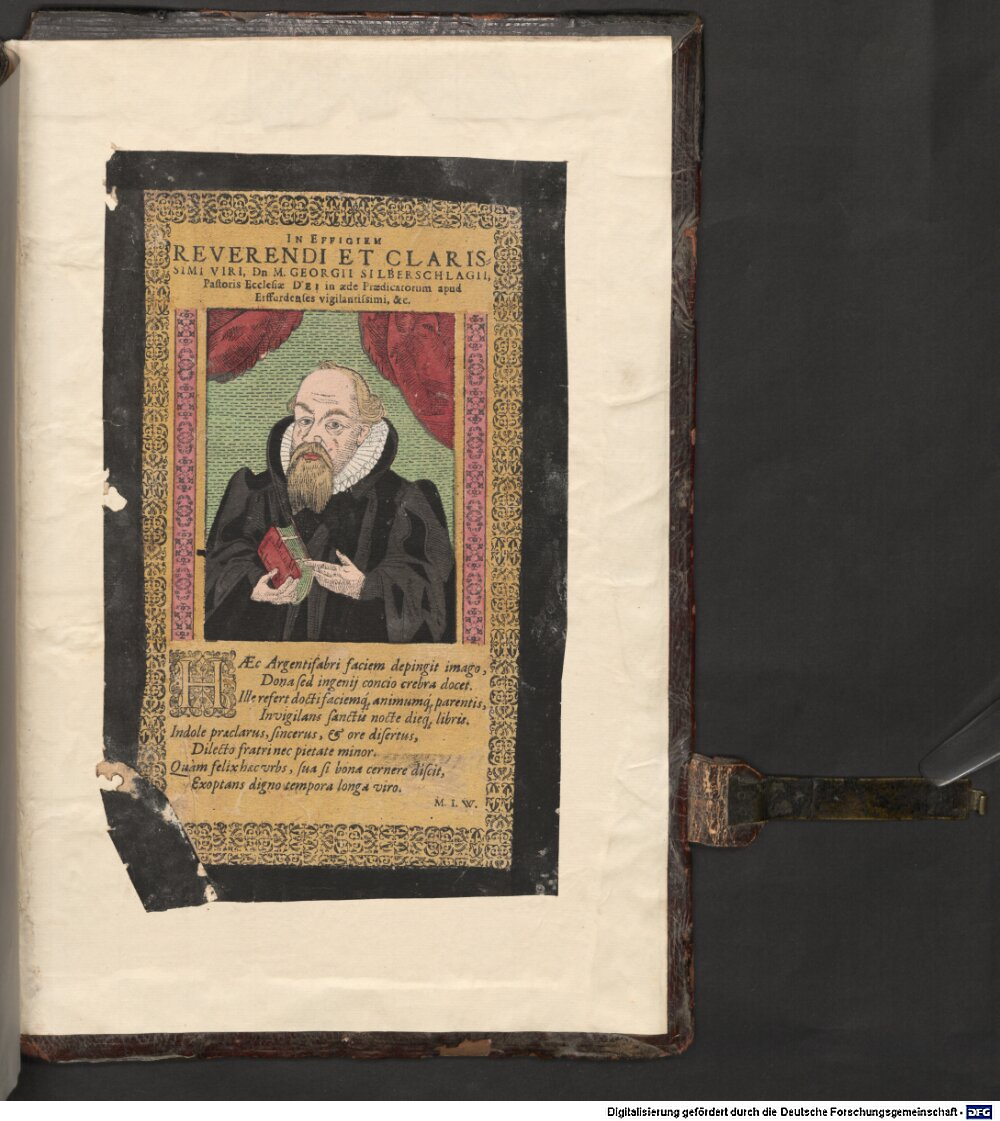 IN EFFIGIEM
REVERENDI ET CLARIS-
SIMI VIRI, Dn M. GEORGII SILBERSCHLAGII,
Pastoris Ecclesiæ DEI in æde Prædicatorum apud
Erffurdenses vigilantissimi, &c.
HÆc Argentifabri faciem depingit imago,
Dona sed ingenij concio crebra docet.
Ille refert docti faciemq́, animumq́, parentis,
Invigilans sanctis nocte dieq́, libris.
Indole præclarus, sincerus, & ore disertus,
Dilecto fratri nec pietate minor.
Quàm felix hæc vrbs, sua si bona cernere discit,
Exoptans digno tempora longa viro.
M. I. W.
Digitalisierung gefördert durch die Deutsche Forschungsgemeinschaft - DFG